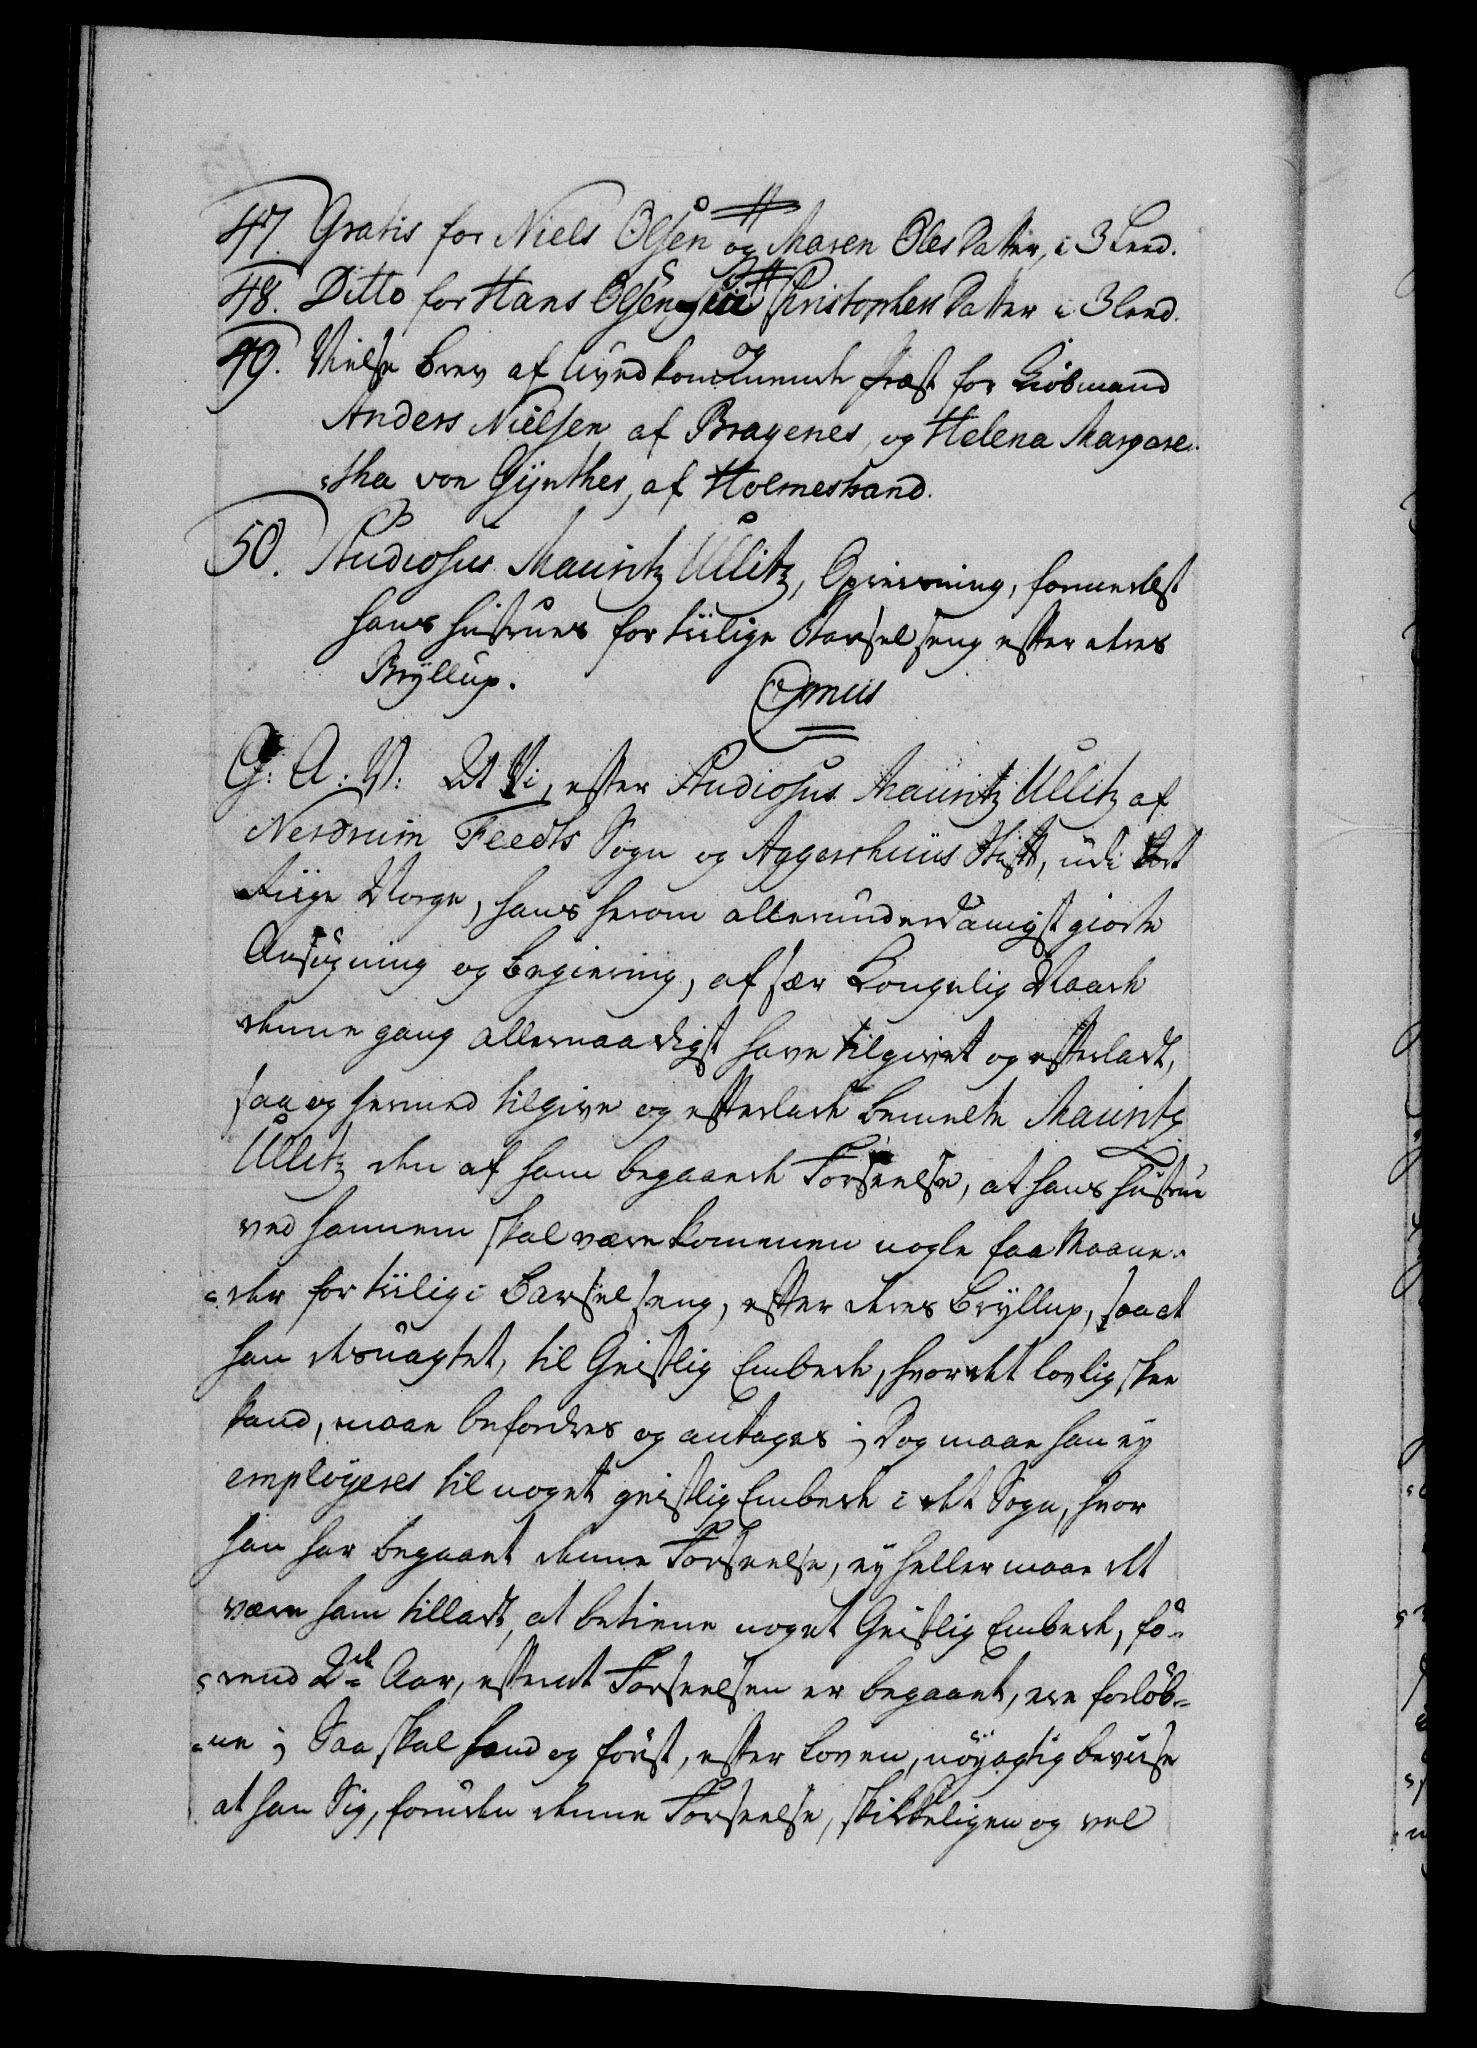 47. Gratis for Niels Olsen og Maren Oles Datter, i 3 Leed.
48. Ditto for Hans Olsen og Christophers Datter i 3 Leed.
49. Vielse Brev af uvedkommende Præst for Kiöbmand
Anders Nielsen af Bragenes, og Helena Margare-
-tha von Gÿnther, af Holmestrand.
50. Studiosus Mauritz Ullitz, Opreisning, formedelst
hans Hustrues for tiilige Barselseng efter deres
Brÿllup.
G: A: V: At Vi, efter Studiosus Mauritz Ullitz af
Nesodrum Feedts Sogn og Aggershuus Stift, udi Vort
Riige Norge, hans herom allerunderdanigst giorte
Ansøgning og begiering, af sær Kongelig Naade
denne gang allernaadigst have tilgivet og efterladt,
saa og hermed tilgive og efterlade bemelte Mauritz
Ullitz den af ham begaaede Forseelse, at hans Hustrue
ved hannem skal være kommen nogle faa Maane-
-der for tiilig i Barselseng, efter deres Brÿllup, saa at
han desuagtet, til Geistlig Embede, hvor det lovlig skee
kand, maae befordres og antages; Dog maae han eÿ
emploÿeres til noget geistlig Embede i det Sogn, hvor
han har begaaet denne Forseelse, eÿ heller maae det
være ham tilladt, at betiene noget Geistlig Embede, fö-
-rend 2de Aar, efter at Forseelsen er begaaet, ere forlöb-
-ne; Saa skal hand og först, efter Loven, nöÿagtig beviise
at han Sig, foruden denne Forseelse, skikkeligen og vel